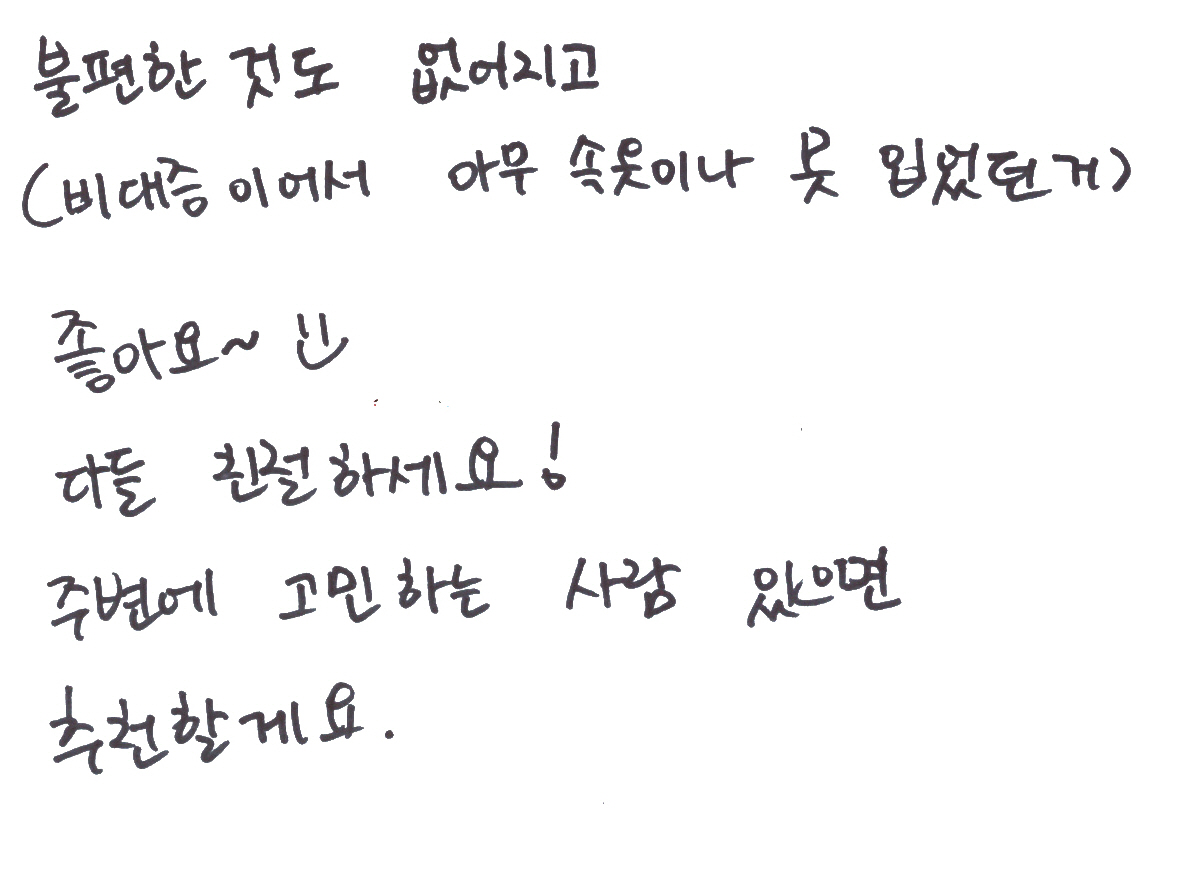 불편한 것도 없어지고
(비대증이어서 아무 속옷이나 못 입었던거)
좋아요~ :)
다들 친절하세요!
주변에 고민하는 사람 있으면
추천할게요.